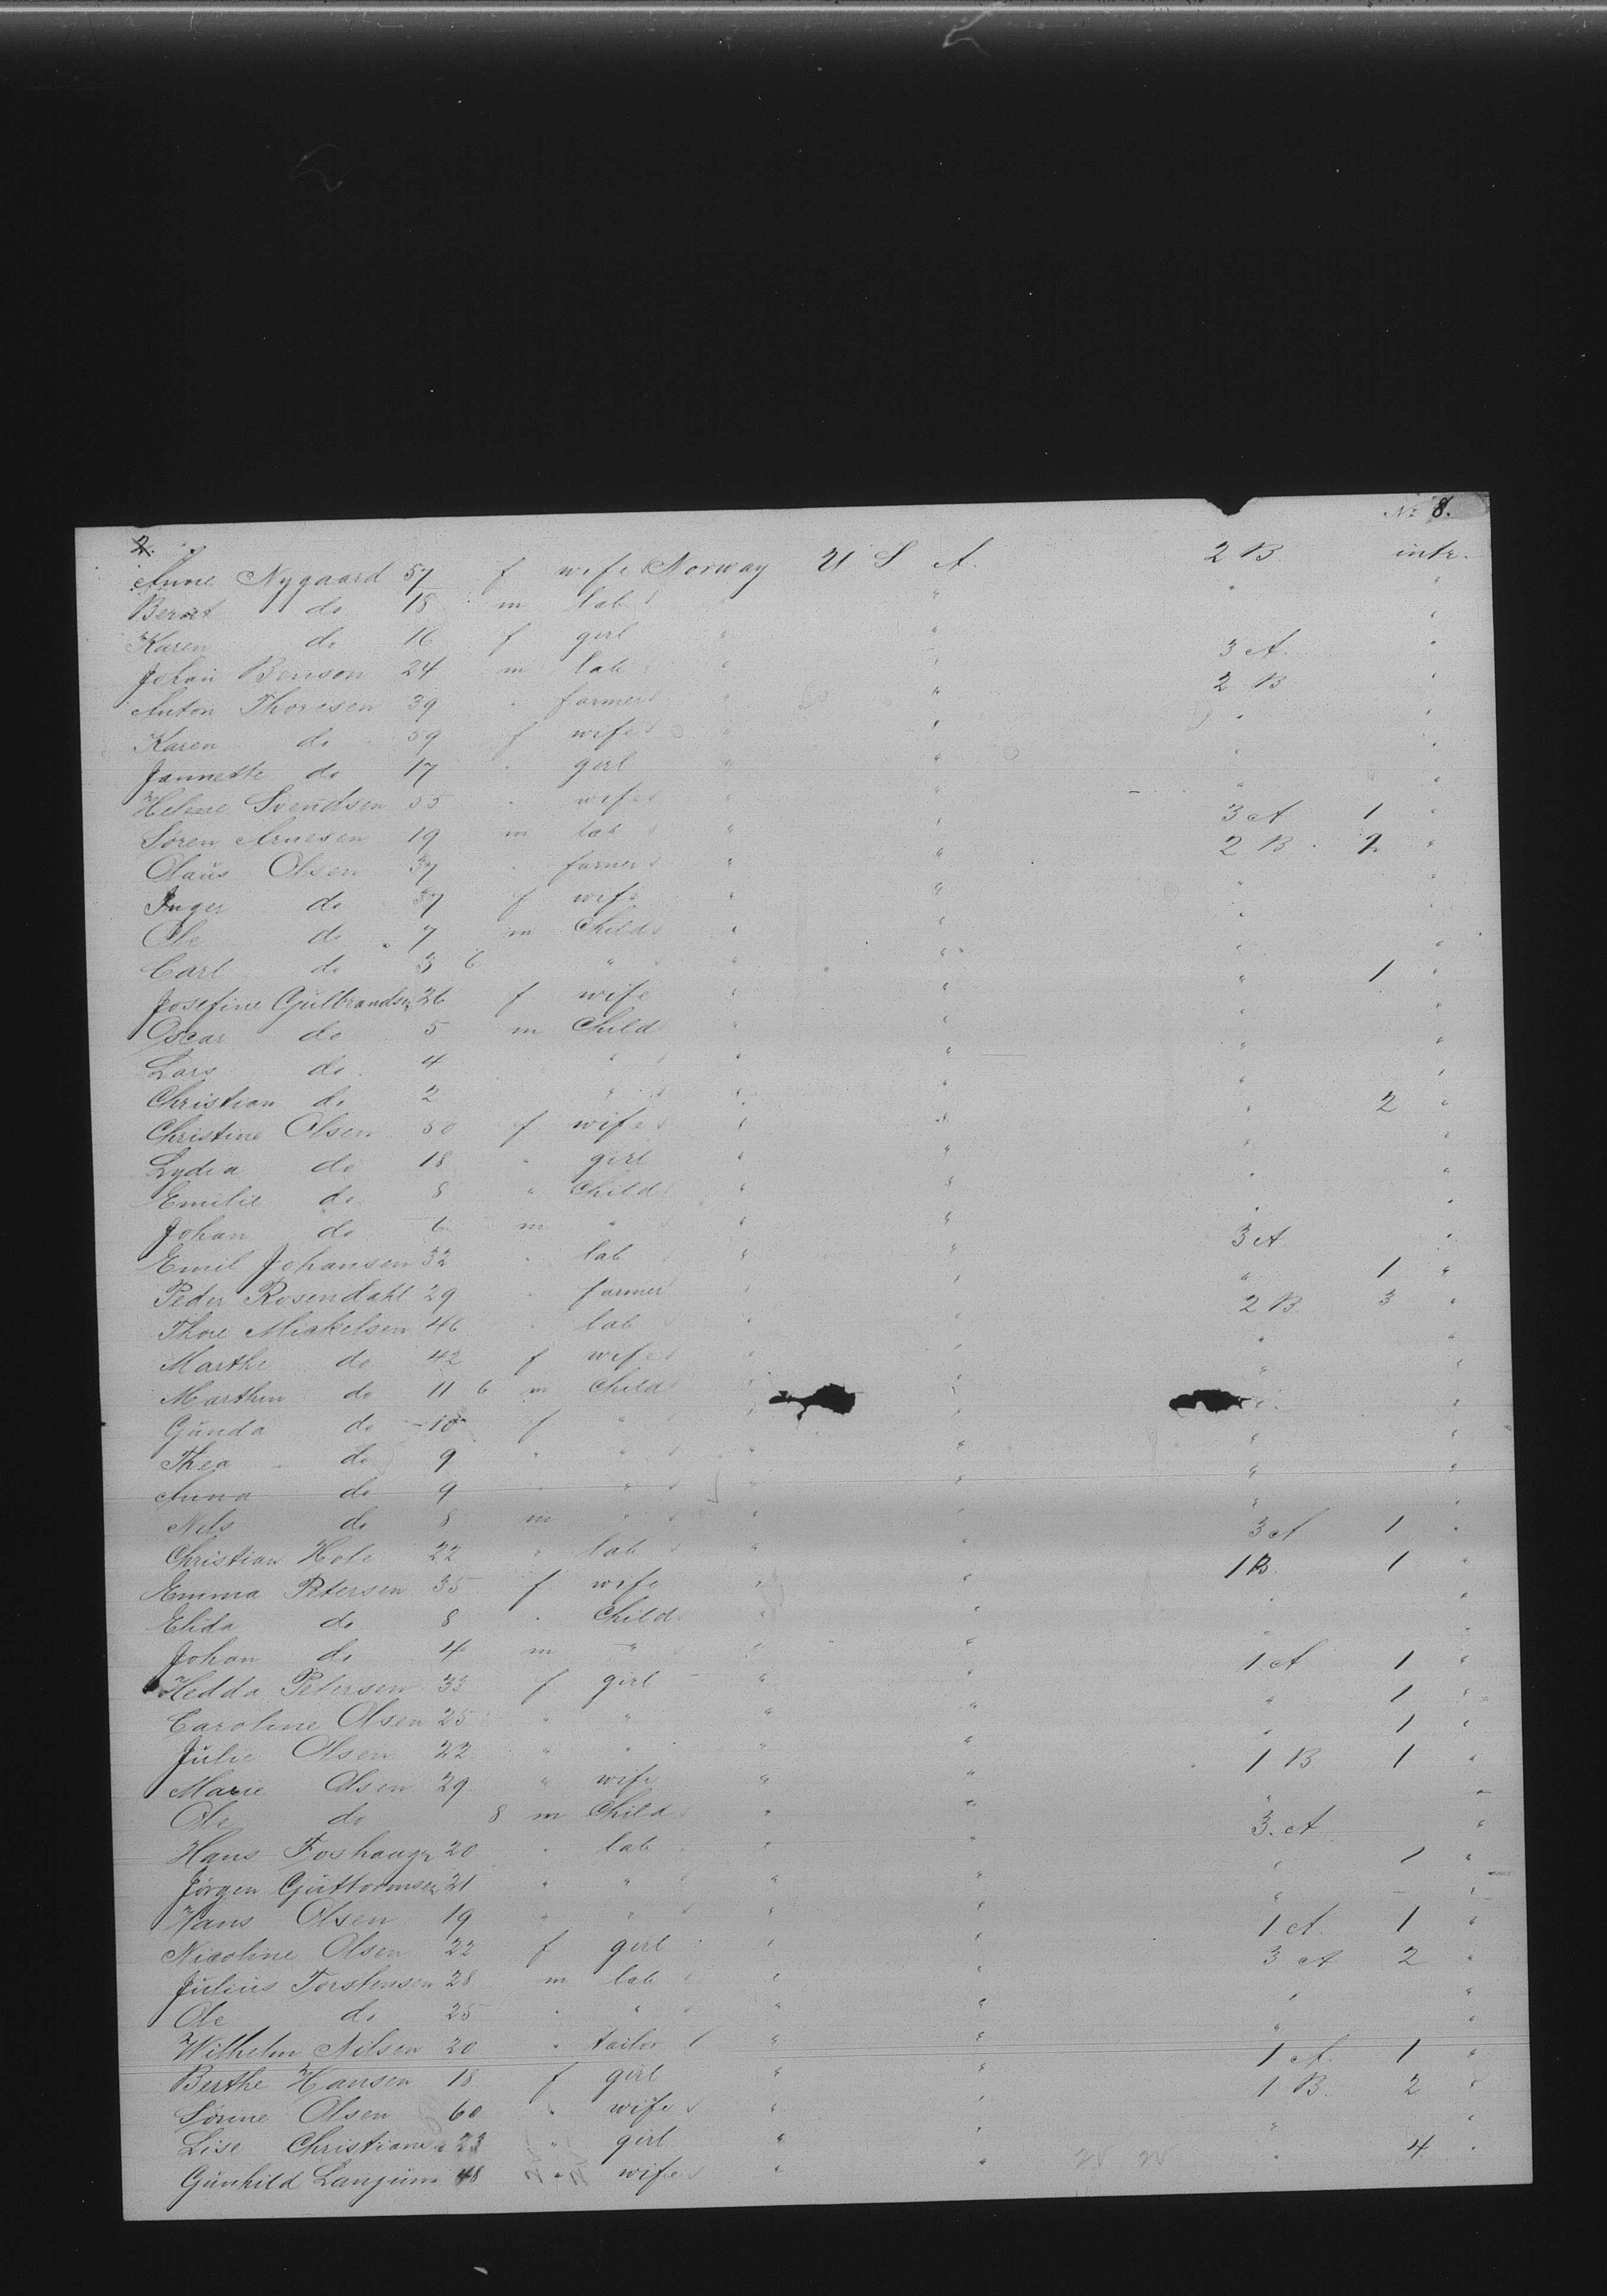 2. № 8.
Anne Nygaard 57 f wife Norway U S A. 2 B. intr.
Bernt do 18 m lab " " " "
Karen do 16 f girl " " "
Johan Benson 24 m lab " " 3 A. "
Anton Thoresen 39 " farmer " " 2 B "
Karen do 59 f wife " " " "
Jannette do 17 " girl " " " "
Helene Svendsen 55 " wife " " " "
Soren Arnesen 19 m lab " " 3 A 1 "
Olaüs Olsen 37 " farmer " " 2 B. 2 "
Inger do 37 f wife " " " "
Ole do 7 m Child " " " "
Carl do 3 6 " " " " "
Josefine Gülbrandsen 26 f wife " " " 1 "
Oscar do 5 m Child " " " "
Lars do 4 " " " " "
Christian do 2 " " " " "
Christine Olsen 50 f wife " " " 2 "
Lydia do 18 " girl " " " "
Emilie do 8 " Child " " " "
Johan do 6 m " " " " "
Emil Johansen 32 " lab " " 3 A "
Peder Rosendahl 29 " farmer " " " 1 "
Thore Mickelsen 46 " lab " " 2 B. 3 "
Marthe do 42 f wife " " " "
Marthin do 11 6 m Child " " " "
Günda do 10 f " " " " "
Thea do 9 " " " " " "
Anna do 9 " " " " " "
Nils do 8 m " " " " "
Christian Hole 22 " lab " " 3 A 1 "
Emma Petersen 35 f wife " " 1 B. 1 "
Elida do 8 " Child " " " "
Johan do 4 m " " " " "
Hedda Petersen 33 f girl " " 1 A 1 "
Caroline Olsen 25 " " " " " 1 "
Jülie Olsen 22 " " " " " 1 "
Marie Olsen 29 " wife " " 1 B 1 "
Ole do 8 m Child " " " "
Hans Foshaug 20 " lab " " 3. A "
Jörgen Güttormsen 21 " " " " " 1 "
Hans Olsen 19 " " " " " "
Nicoline Olsen 22 f girl " " 1 A. 1 "
Jülius Torstensen 28 m lab " " 3 A 2 "
Ole do 25 " " " " " "
Wilhelm Nilsen 20 " tailor " " " "
Berthe Hansen 18 f girl " " 1 A. 1 "
Sörine Olsen 60 " wife " " 1 B. 2 "
Lise 23 " girl " " " "
Günhild 48 " wife " " " 4 "